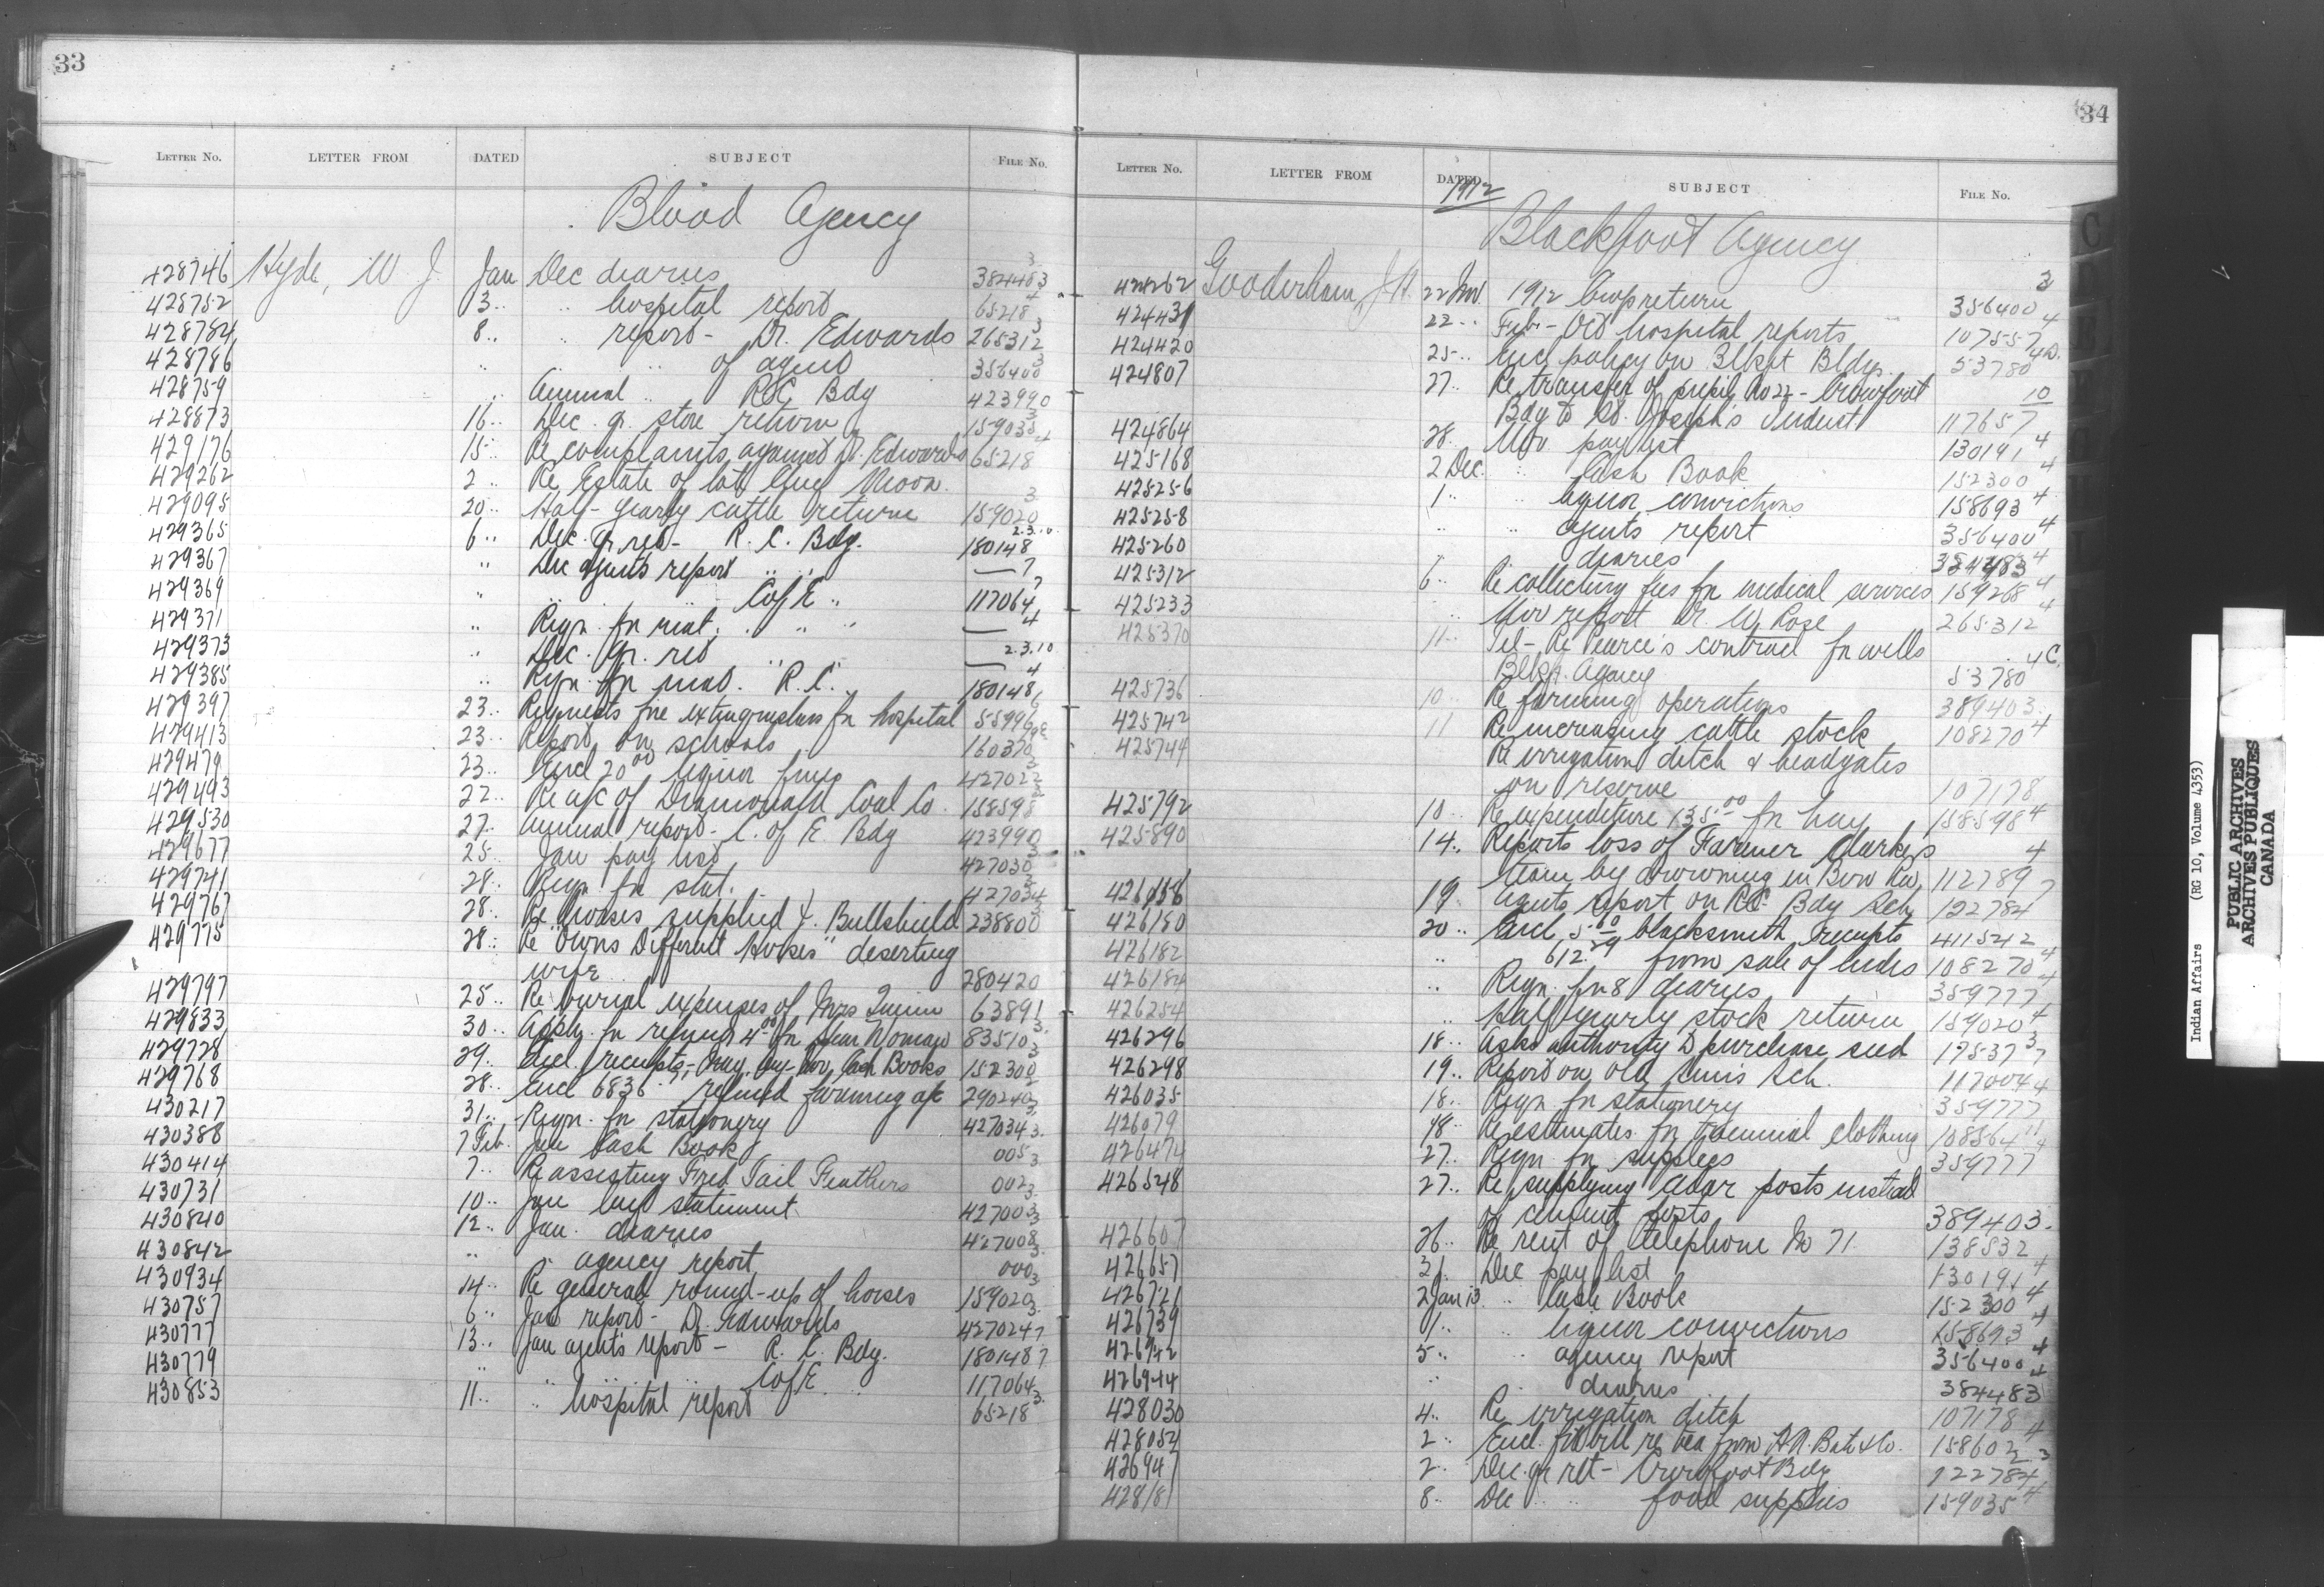 33
LETTER NO. LETTER FROM DATED SUBJECT FILE NO.
Blood Agency
428746 Hyde, W. J. Jan Dec diaries 384483 3
428752 3 " " hospital report 65218 4
428784 8 " " report - Dr. Edwards 265312 3
428786 " " " of agent 356400 3
428759 " Annual " R.C. Bdg 423990
428873 16 " Dec. qr. store return 159035 3
429176 15 " Re complaints against Dr. Edwards 65218 4
429262 2 " Re Estate of late Moon.
429095 20 " Half-yearly cattle return 159020 3
429365 6 " Dec. Qr. ret - R. C. Bdg. 180148 2.3.10
429367 " Dec agents report " " — 7
429369 " " " " C of E " 117064 7
429371 " Reqn. for mat. " " " — 4
429373 " Dec. Qr. ret " — 2.3.10
429385 " Reqn. for mat. " R.C. " 180148 4
429397 23 " Requests fire extinguishers for hospital 55996
429413 23 " Report on schools 160370
429479 23 " Encl 20.00 liquor fines 427022 3
429493 22 " Re a/c of Diamond Coal Co. 158598
429530 27 " Annual report - C. of E. Bdg 423990
429677 25 " Jan pay list 427030 3
429741 28 " Reqn for stat. 427034 3
429767 28 " Re horses supplied J. Bullshield 238800
429775 28 " Re "Owns Different Horses" deserting
wife 280420
429797 25 " Re burial expenses of Mrs Quinn 63891
429833 30 " Appln. for refund 4.00 for Woman 83510 3
429728 29 " Encl. receipts - Cash Books 152300 3
429768 28 " Encl 6836 refund farming a/c 290240
430217 31 " Reqn. for stationery 427034 3
430388 7 Feb. Jan Cash Book 005 3
430414 7 " Re assisting Fred Tail Feathers 002 3
430731 10 " Jan statement 427003 3
430840 12 " Jan. diaries 427008 3
430842 " " agency report 000 3
430934 14 " Re general round-up of horses 159020 3
430757 6 " Jan report - Dr. Edwards 427024
430777 13 " Jan agent's report - R. C. Bdg. 180148 7
430779 " " " " C of E " 117064
430853 11 " " hospital report 65218 3
34
LETTER NO. LETTER FROM DATED SUBJECT FILE NO.
1912
Blackfoot Agency
424262 Gooderham, J. H. 22 Nov. 1912 Crop return 356400 3
424431 22 " Feb - Oct hospital reports 107557 4
424420 25 " Encl policy on Blkft Bldgs. 53780 4D.
424807 27 " Re transfer of pupil No 22 - Crowfoot
Bdg to St. Joseph's Indust 117657 10
424864 28 " Nov pay list 130191 4
425168 2 Dec. " Cash Book 152300 4
425256 1 " " liquor convictions 158693 4
425258 " " agents report 356400 4
425260 diaries 384483 4
425312 6 " Re collecting fees for medical services 159268 4
425233 " Nov report Dr. W. Rose 265312 4
425370 11 " Tel - Re Pearce's contract for wells
Blkft. Agency 53780 4C.
425736 10 " Re farming operations 389403
425742 11 Re increasing cattle stock 108270 4
425744 Re irrigation ditch & headgates
on reserve 107178
425792 10 " Re expenditure 135.00 for hay 158598 4
425890 14 " Reports loss of Farmer Clarke's
team by drowning in Bow Riv. 112789 4
426158 19 " Agents report on R.C. Bdg Sch. 122784 7
426180 20 " Encl 5.00 blacksmith receipts 411542
426182 " " 612.29 from sale of hides 108270 4
426184 " Reqn. for 8 diaries 359777 4
426254 " Half yearly stock return 159020 4
426296 18 " Asks authority to purchase seed 17537 3
426298 19 " Report on Old Suns Sch. 117004 7
426035 18 " Reqn for stationery 359777 4
426079 18 " Re estimates for triennial clothing 108564 11
426474 27 " Reqn for supplies 359777 4
426548 27 " Re supplying cedar posts instead
of cement posts 389403
426607 26 " Re rent of telephone No 71 138532
426657 21 Dec pay list 130191 4
426721 2 Jan 13 " Cash Book 152300 4
426739 1 " " liquor convictions 158693 4
426942 5 " " agency report 356400 4
426944 " " diaries 384483 4
428030 4 " Re irrigation ditch 107178
428054 2 " Encl. re tea from H. N. Bate & Co. 158602 4
426947 2 " Dec. qr ret - Crowfoot Bdg 122784 3
428181 8 " Dec " " food supplies 159035 4
Indian Affairs (RG 10, Volume 4353)
PUBLIC ARCHIVES
ARCHIVES PUBLIQUES
CANADA